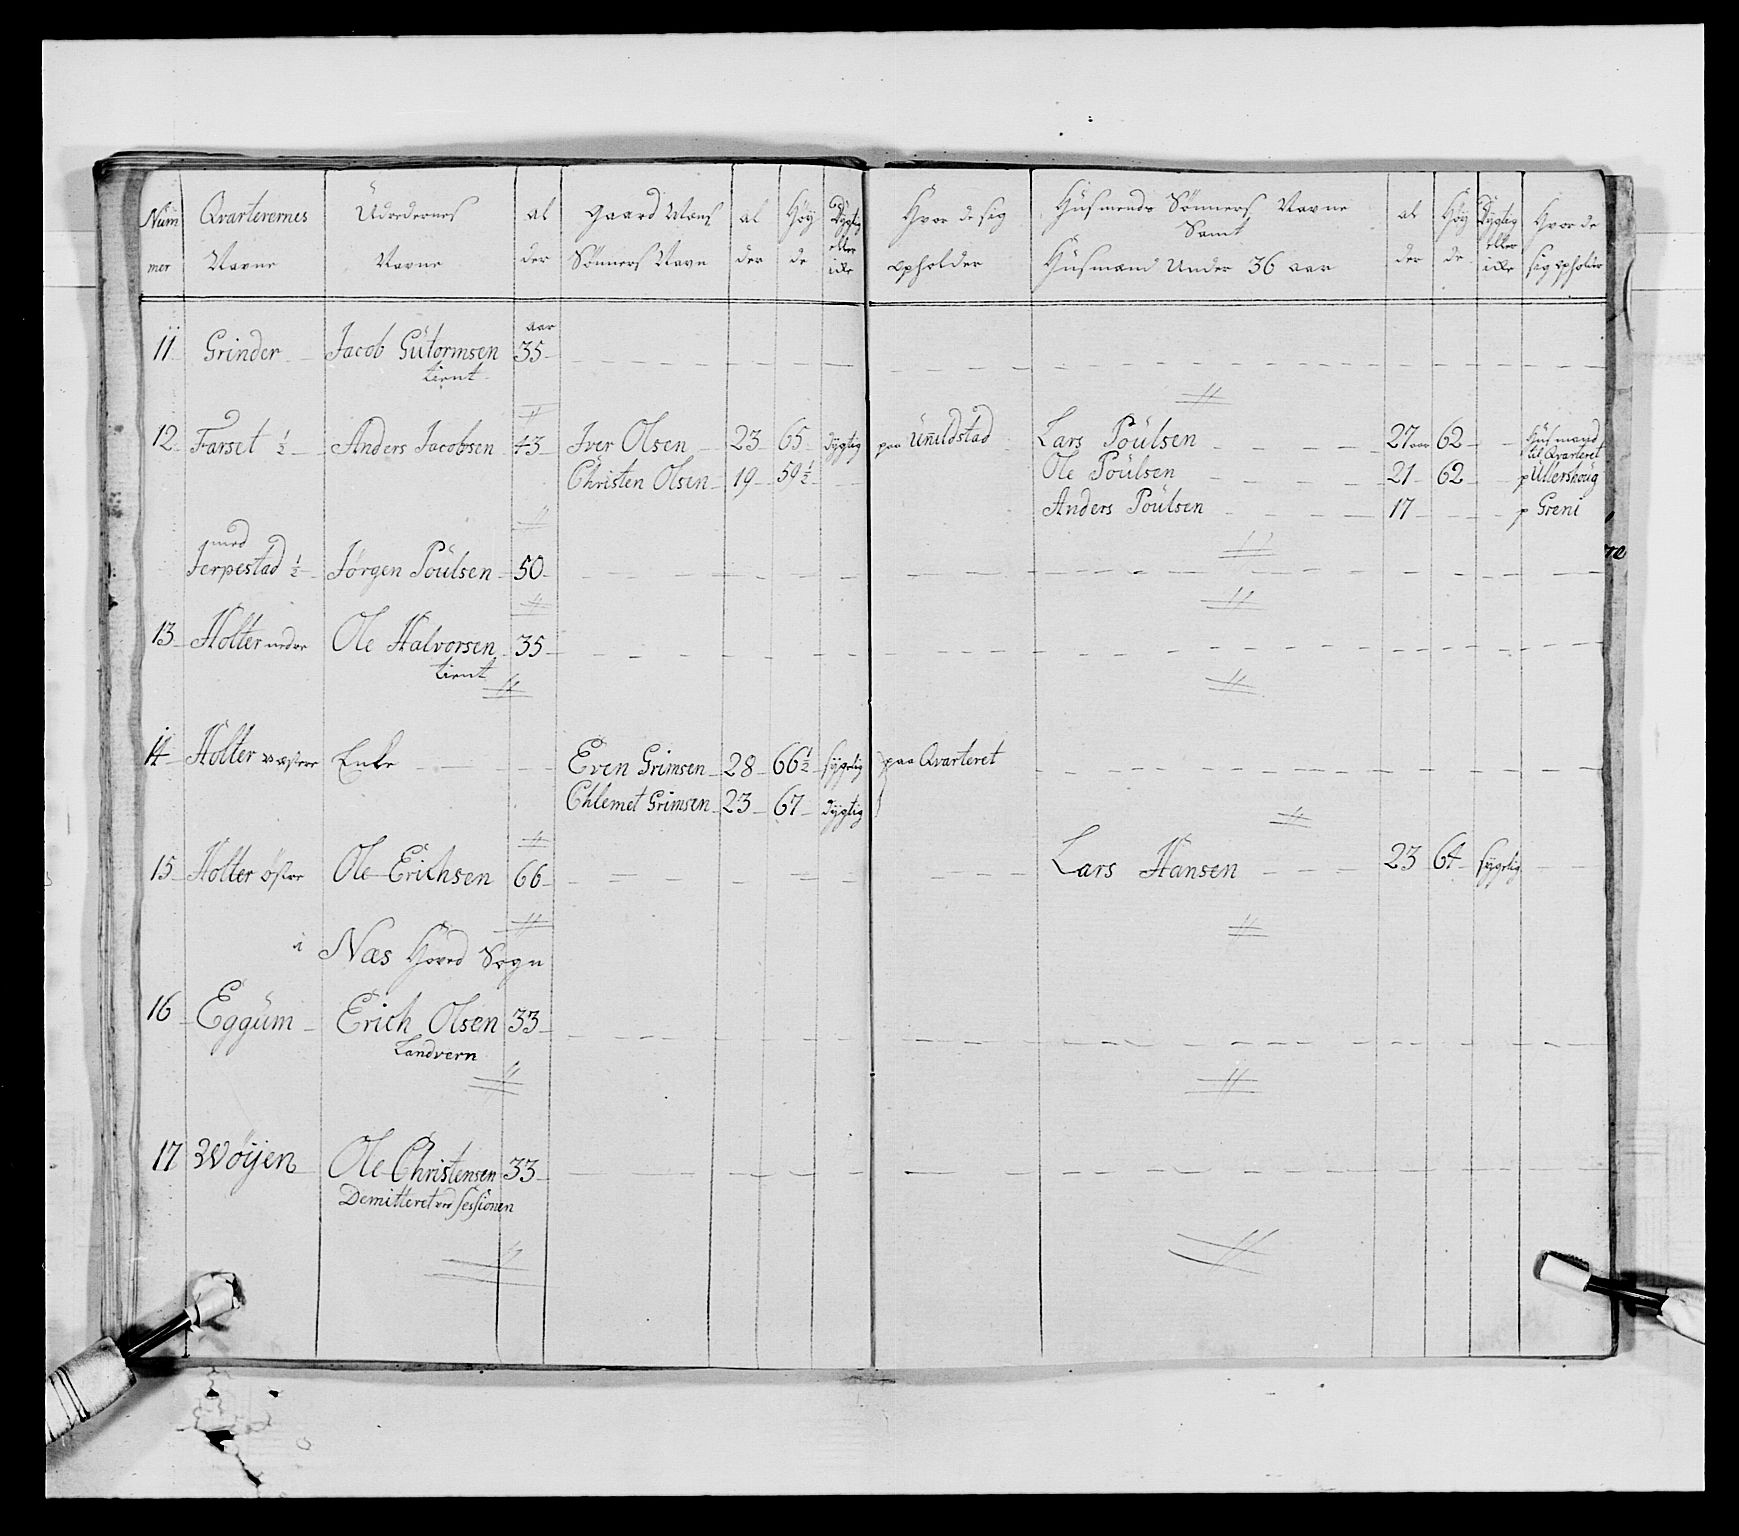 Num Qvarterernes Udredernes al Gaard Mans al Höy Dygtig Hvor de sig Huusmends Sönners Navne al Höy Dygtig Hvor de
mer Navne Navne der Sönners Navn der de eller icke opholder Samt der de eller icke sig opholder
Huusmænd Under 36 aar
aar
11 Grinder Jacob Gutormsen 35
tient
12 Farset ½ Anders Jacobsen 43 Iver Olsen 23 65 dygtig paa Unildstad Lars Poulsen 27 aar 62 Huusmand til Qvarteret
Christen Olsen 19 59½ Ole Poulsen 21 62 p Ullershoug
Anders Poulsen 17 p Greni
med
Jerpestad ½ Jörgen Poulsen 50
13 Holter nedre Ole Halvorsen 35
tient
14 Holter vestre Enke Even Grimsen 28 66½ sygelig paa Qvarteret
Chlemet Grimsen 23 67 dygtig
15 Holter östre Ole Erichsen 66 Lars Hansen 23 64 sygelig
i Næs Hoved Sogn
16 Eggum Erich Olsen 33
Landvern
17 Wöyen Ole Christensen 33
Demitteret ved Sessionen